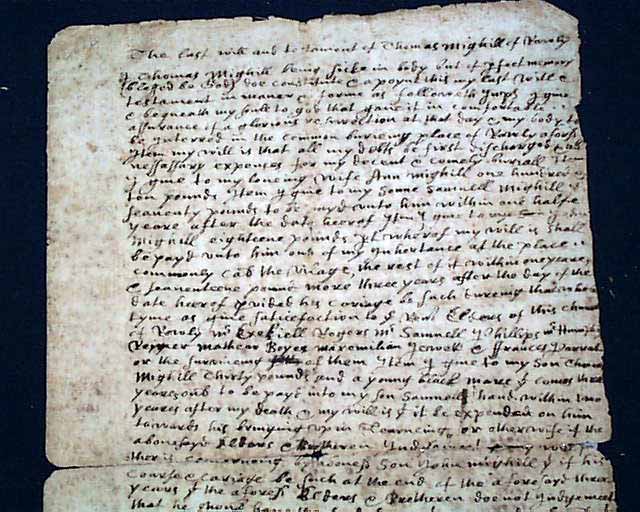 The last will and testament of Thomas Mighill of Rowly
I Thomas Mighill being sicke in body but of pfect memory
(blessed be God) doe constitute & apoynt this my last Will &
testament in maner & forme as followeth Imps I giue
& bequeath my soule to god that gaue it in comfortable
assurance of a glorious resurrection at that day & my body to
be interred in the common burieing place of Rowly aforesd
Item my will is that all my debts be first discharged & all
nessassary expenses for my decent & comely buriall Item
I giue to my loueing wife Ann mighill one hundred &
ten pounds Item I giue to my Sonne Samuell Mighill
seauenty pounds to be payd vnto him within one halfe
yeare after the date heerof Item I giue to my
Mighill eighteene pounds of wherof my will is shall
be payd vnto him out of my Inheritance at the place
commonly cald the vilage, the rest of it within one yeare
& seauenteene pound more three years after the day of the
date heerof prvided his cariage be such dureing that whole
tyme as giue satisfaction to ye Revd Elders of this church
of Rowly mr Ezekiell Rogers mr Samuell Phillips mr Humphrey
Reyner mathew Boyes maximilian Jewett & ffrances Parrat
or the surviueing of them Item I giue to my Son Thomas
Mighill Thirty pounds and a young black mare yt comes three
years old to be payd into my son Samuells hand within two
yeares after my death & my will is yt it be expended on him
towards his bringing vp in Learneing, or otherwise if the
abouesayd Elders & Bretheren Judg meet my will
ther is concerneing my Son John mighill yt if his
Course & cariage be such at the end of the aforesayd three
years yt the aforesd Elders & Bretheren doe not Judg meet
that he should haue the